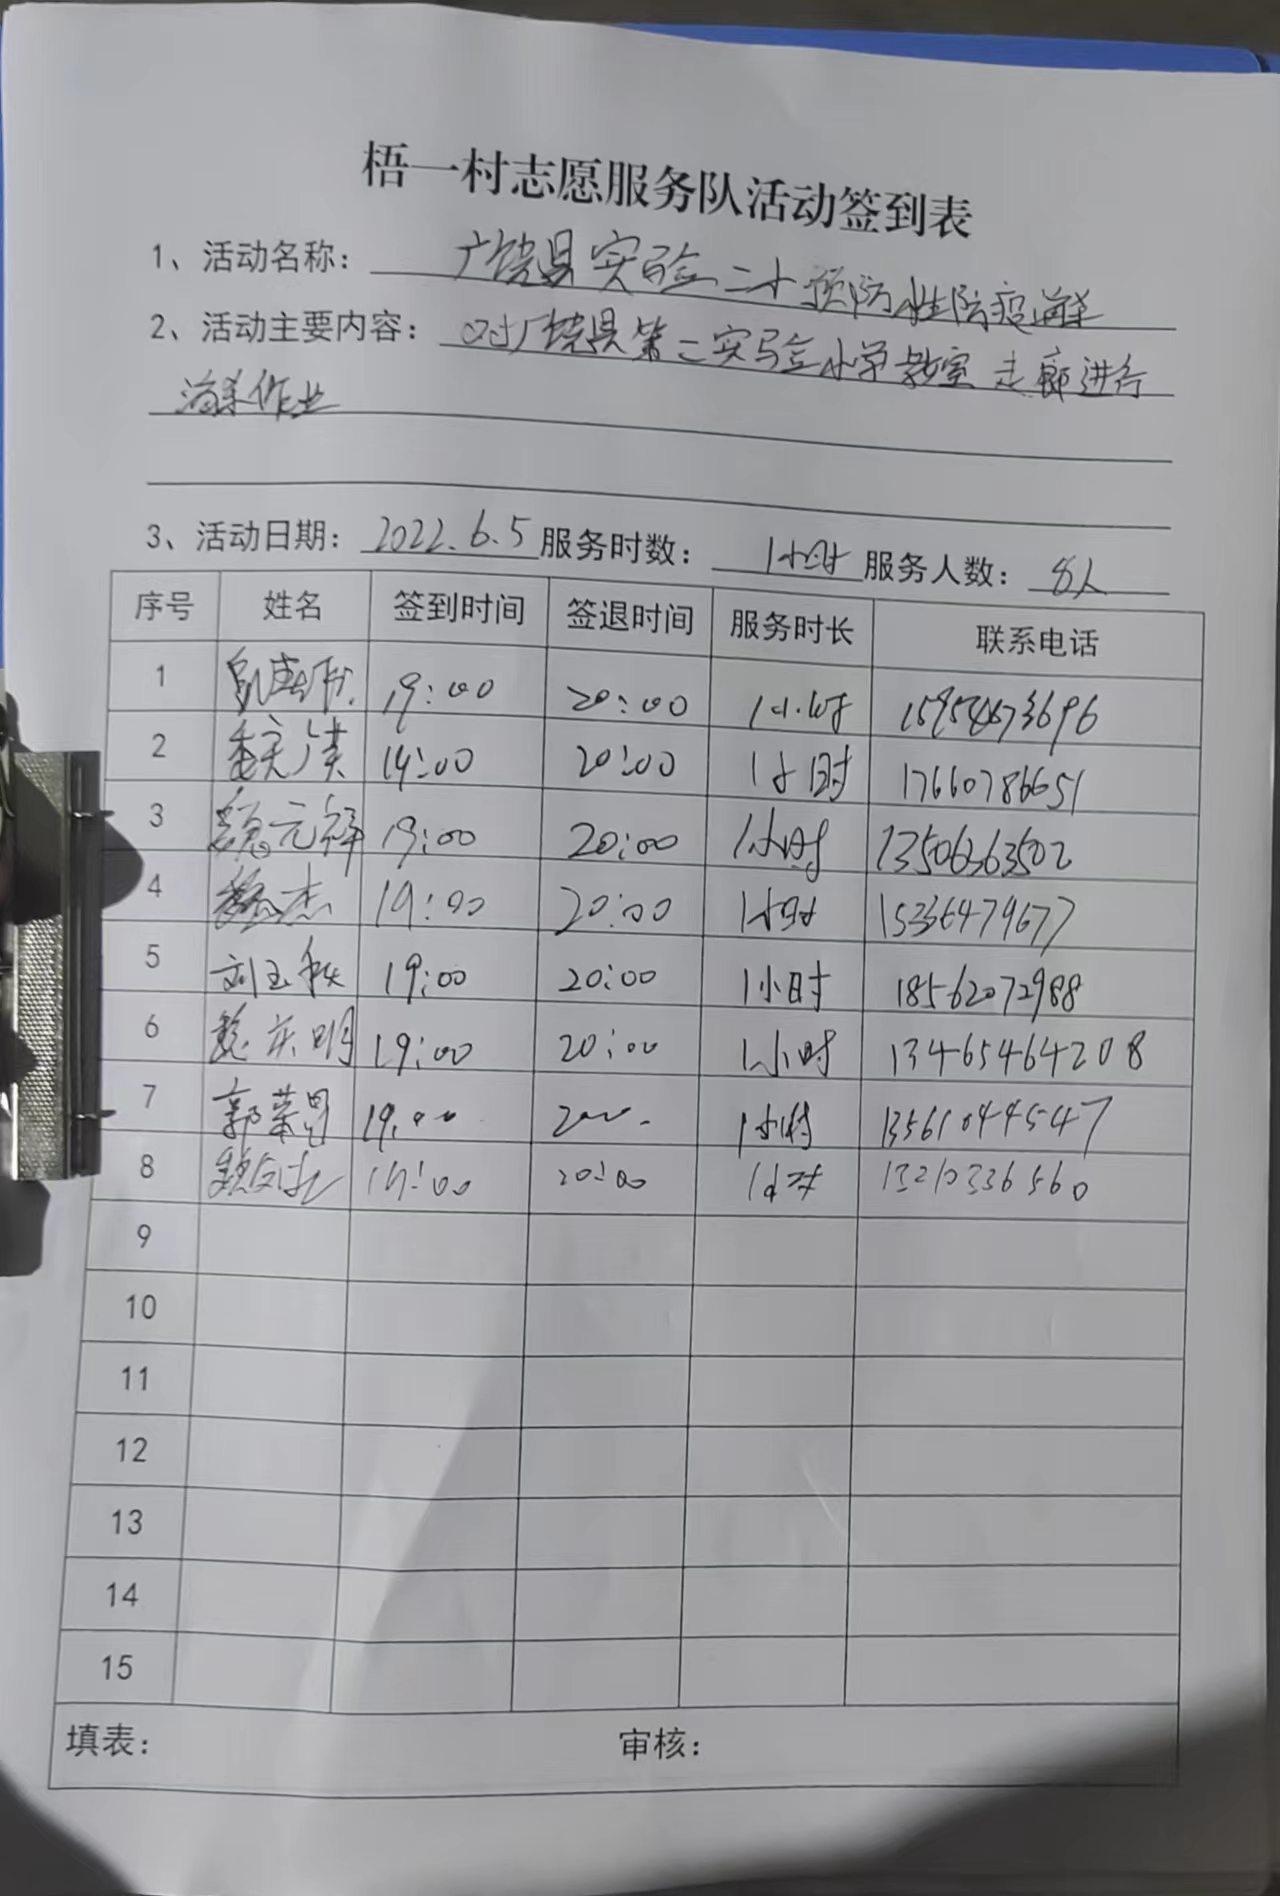 梧一村志愿服务队活动签到表
1、活动名称： 广饶县实验二小预防性防疫消杀
2、活动主要内容： 对广饶县第二实验小学教室走廊进行
消杀作业
3、活动日期： 2022.6.5 服务时数： 1小时 服务人数： 8人
序号 姓名 签到时间 签退时间 服务时长 联系电话
1 19:00 20:00 1小时 15954673696
2 19:00 20:00 1小时 17660786651
3 魏元祥 19:00 20:00 1小时 13506363502
4 魏杰 19:00 20:00 1小时 15336479677
5 刘玉秋 19:00 20:00 1小时 18562072988
6 魏庆明 19:00 20:00 1小时 13465464208
7 郭荣昌 19:00 20:00 1小时 13561044547
8 19:00 20:00 1小时 13210336560
9
10
11
12
13
14
15
填表： 审核：